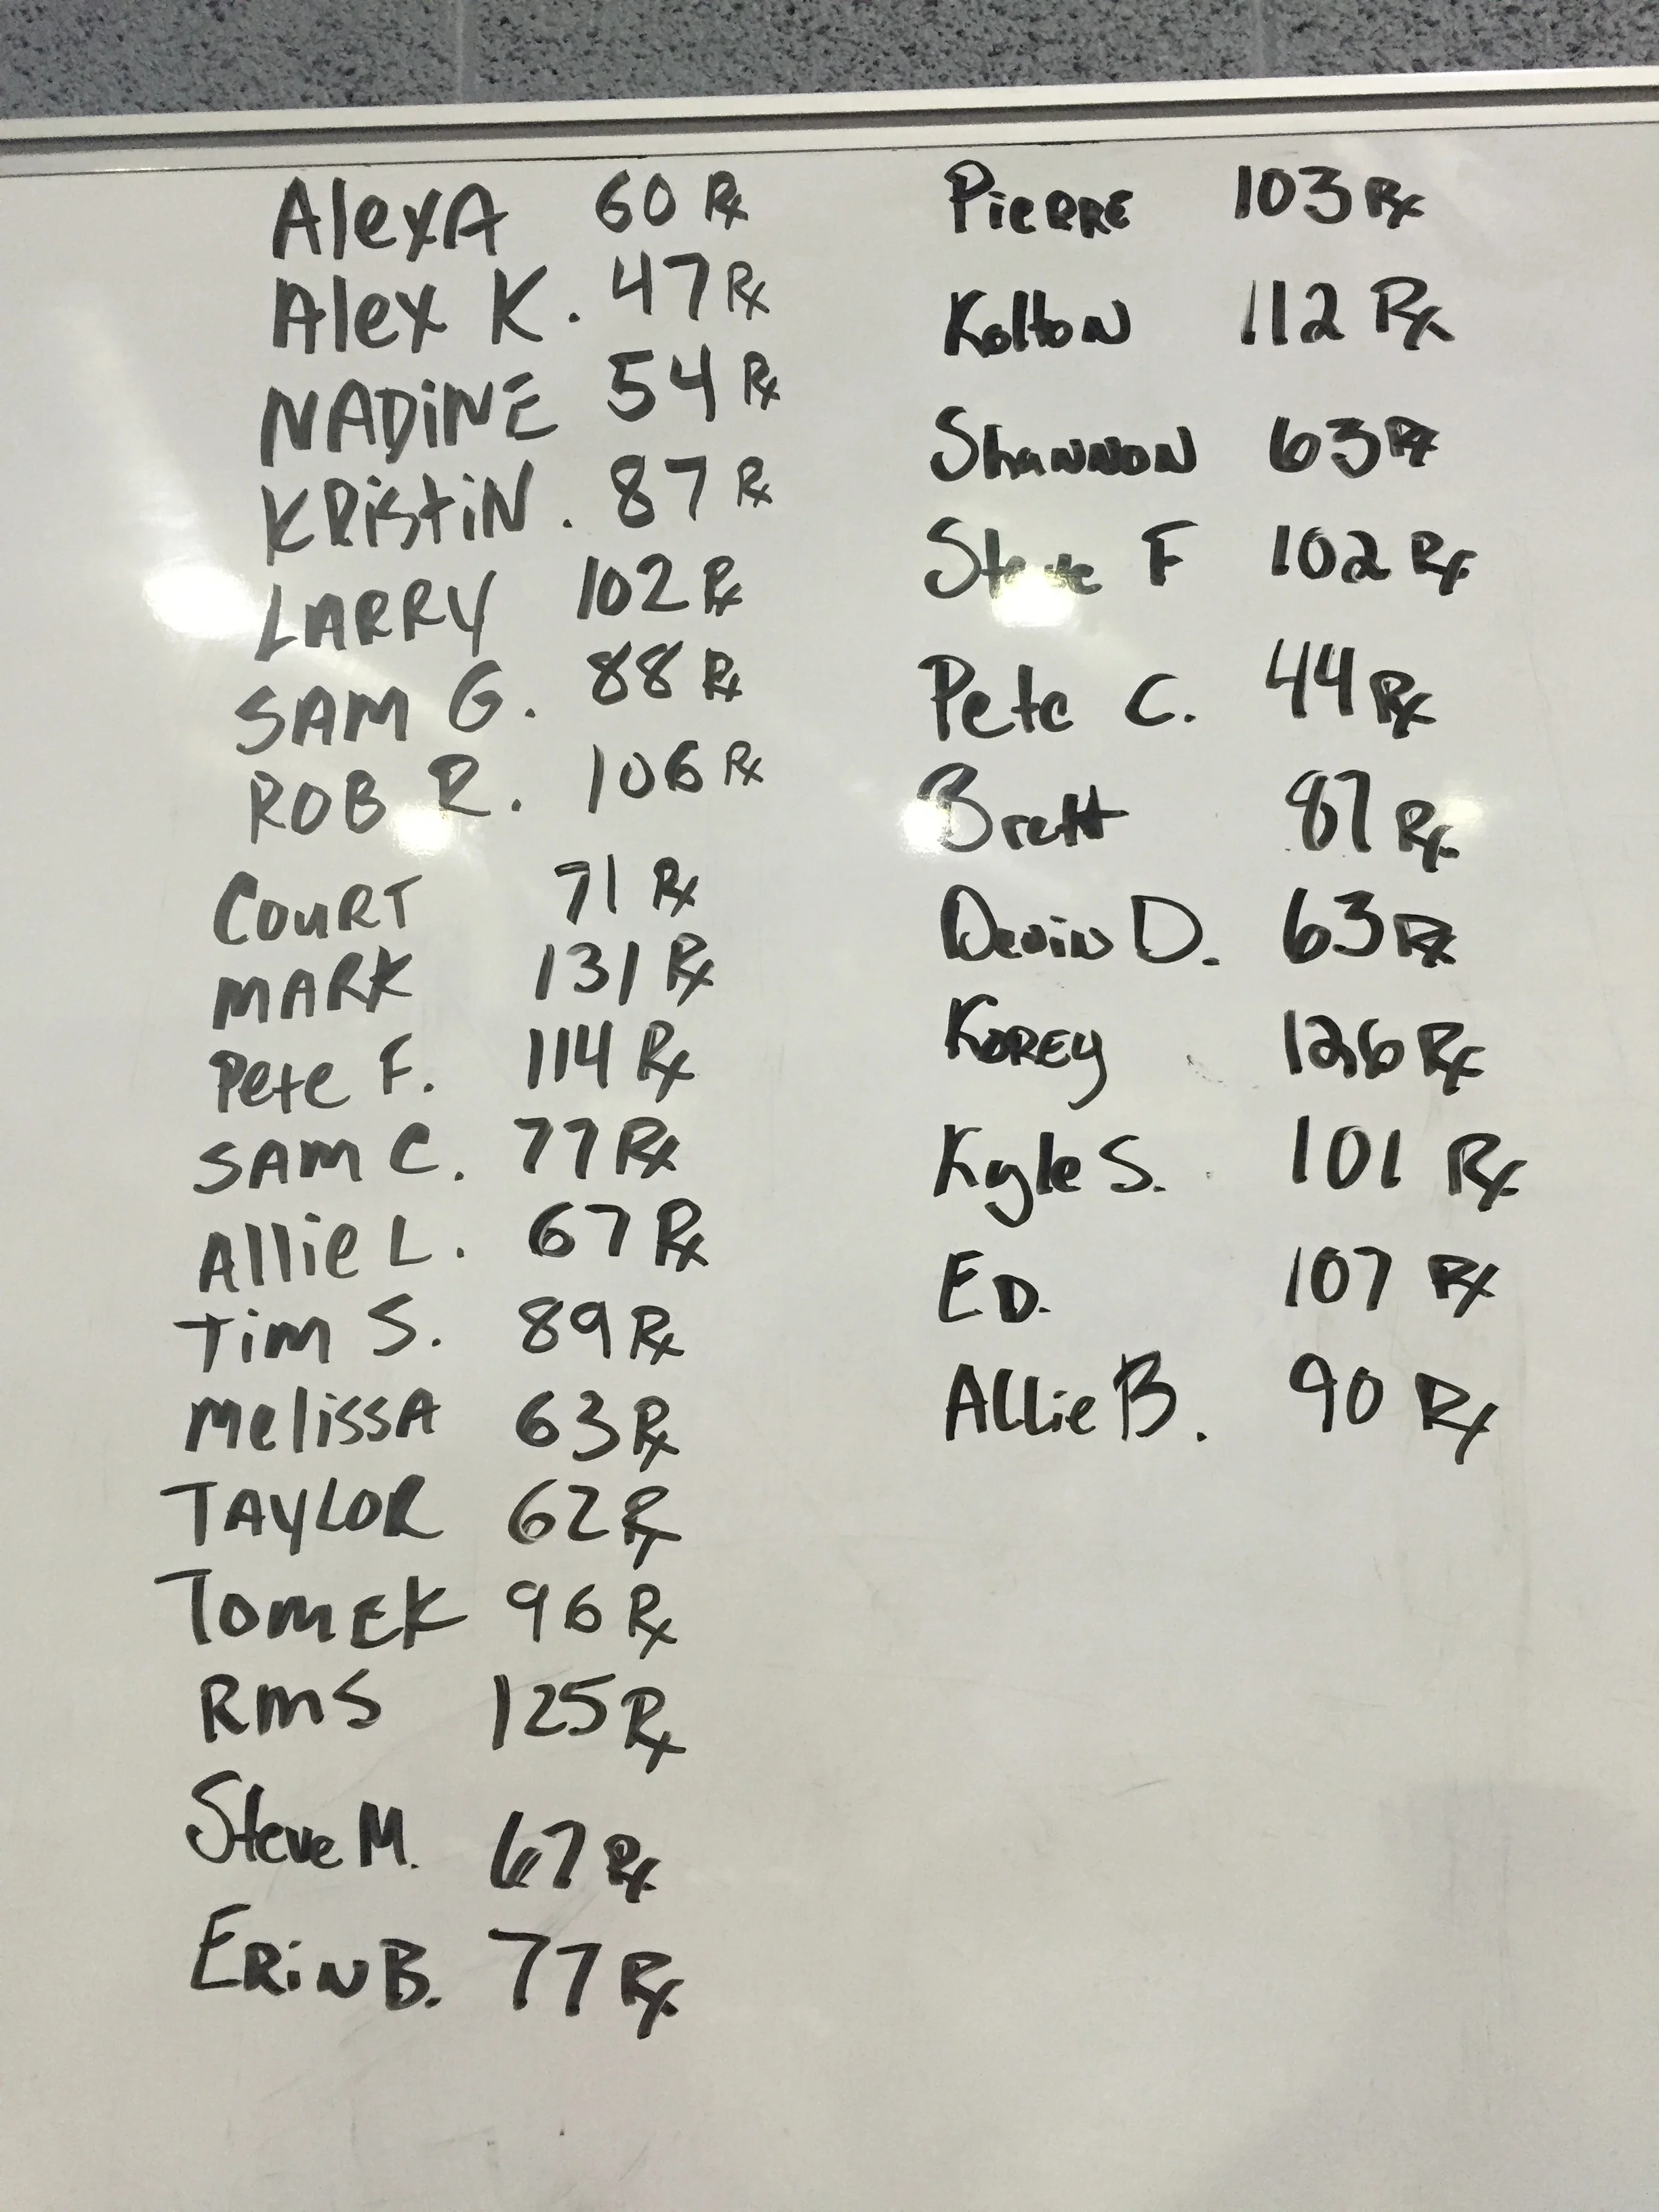 AlexA 60 Rx
Alex K. 47 Rx
NADiNE 54 Rx
KRistiN. 87 Rx
LARRY 102 Rx
SAM G. 88 Rx
ROB R. 106 Rx
COURT 71 Rx
MARK 131 Rx
Pete F. 114 Rx
SAM C. 77 Rx
Allie L. 67 Rx
Tim S. 89 Rx
MelissA 63 Rx
TAYLOR 62 Rx
TOMEK 96 Rx
RMS 125 Rx
Steve M. 67 Rx
ERiN B. 77 Rx
PieRRE 103 Rx
KoltoN 112 Rx
ShaNNoN 63 Rx
Steve F 102 Rx
Pete C. 44 Rx
Brett 87 Rx
DeviN D. 63 Rx
KOREy 126 Rx
Kyle S. 101 Rx
ED. 107 Rx
ALLie B. 90 Rx